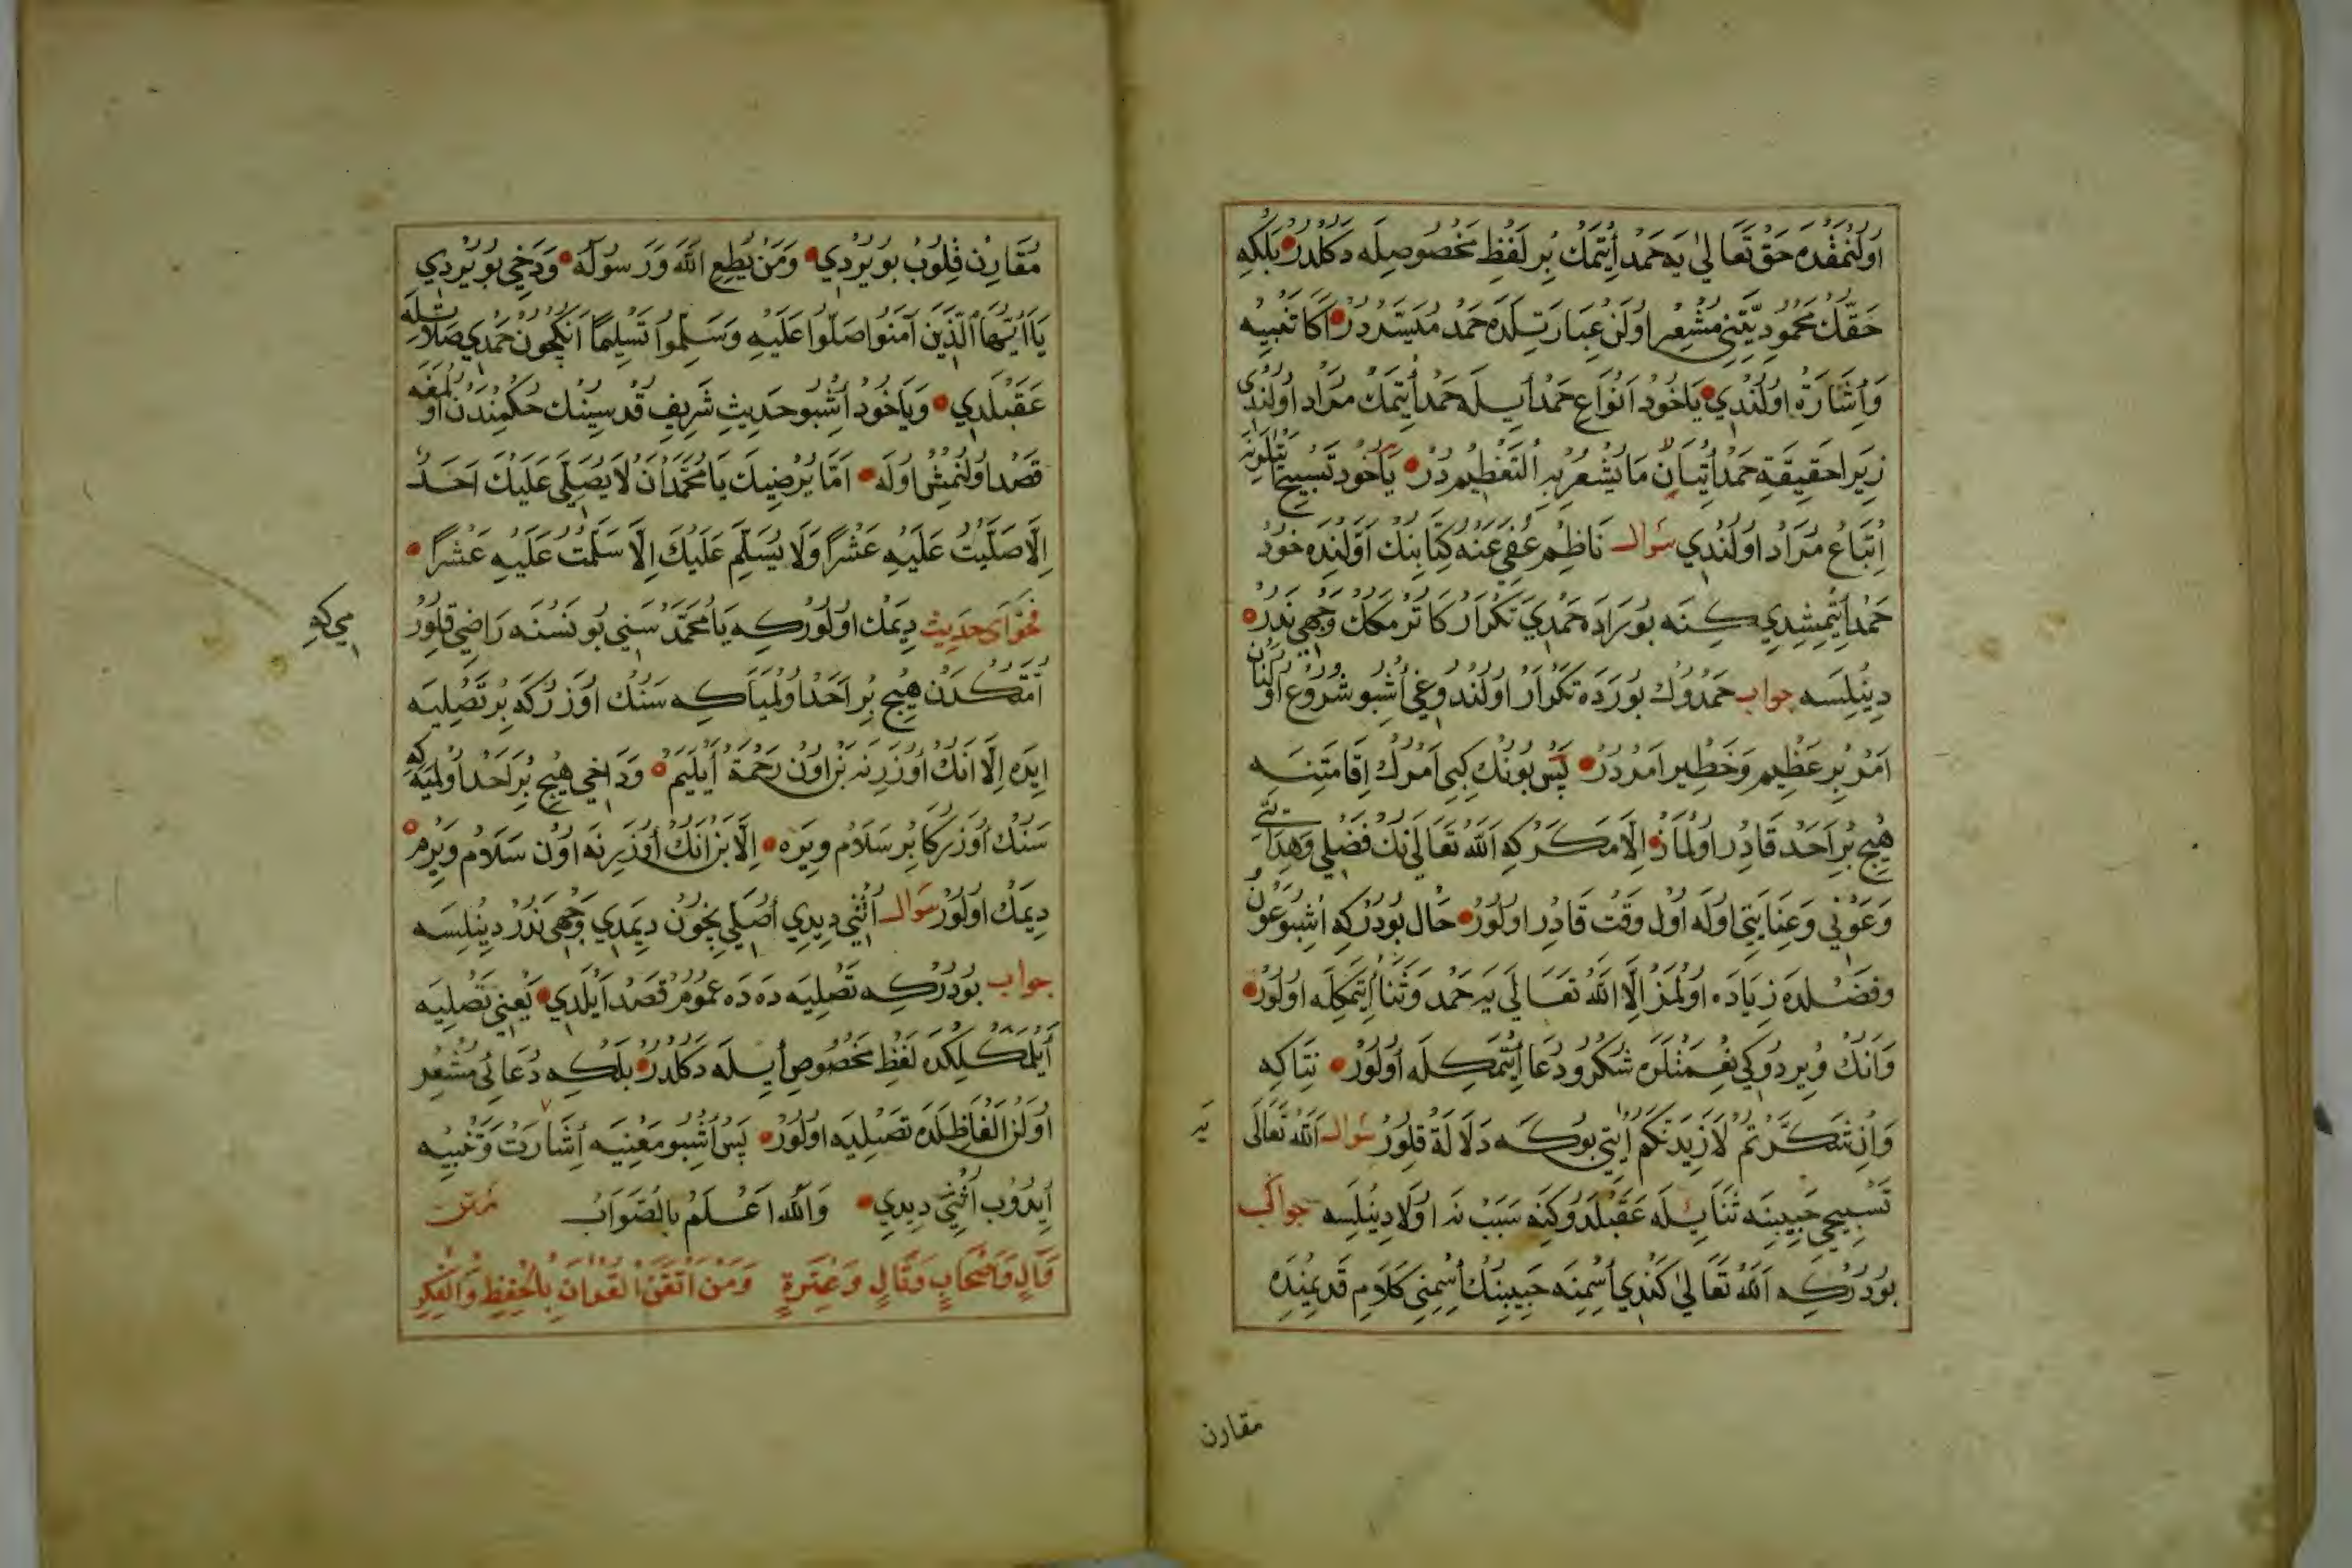 اولنمقده حق تعالى يه حمد ايتمك بر لفظ مخصوصله دكلدر بلكه
حقك محموديتنى مشعر اولن عبارتلده حمد ميسردر اكا تنبيه
وأشارة اولندي ياخود انواع حمد أيله حمد أيتمك مراد اولندى
زيرا حقيقة حمد أتيان ما يشعر به التعظيم در ياخود تسبيح
اتباع مراد اولندي سوال ناظم عفى عنه كتابنك اولنده خود
حمد أيتمشدي كنه بوراده حمدي تكرار كاترمكك وجهى ندر
دينلسه جواب حمدوك بورده تكرار اولندوغى أشبو شروع اولنان
امر بر عظيم وخطير امردر پس بونك كبى امرك اقامتنه
هيچ بر احد قادر اولماز الا مكر كه الله تعالى نك فضلى وهدايتى
وعونى وعنايتى اوله اول وقت قادر اولور حال بودركه أشبو عون
وفضلده زياده اولمز الا الله تعالى يه حمد وثنا أيتمكله اولور
وانك ويردوكى نعمتلره شكر ودعا أيتمكله اولور نتاكه
وان شكرتم لازيدنكم ايتى بوكه دلالة قلور سوال الله تعالى
يه
تسبيحى حبيبنه ثنا يله عقبلدوكنه سبب نه اولا دينلسه جواب
بودركه الله تعالى كندي أسمنه حبيبنك أسمنى كلام قديمنده
مقارن
مقارن قلوب بويردي ومن يطع الله ورسوله ودخى بويردي
يا أيها الذين آمنوا صلوا عليه وسلموا تسليما انكچون حمدي صلاتله
عقبلدي وياخود أشبو حديث شريف قدسينك حكمندن اولمغه
قصد اولنمش اوله اما يرضيك يا محمد ان لا يصلى عليك احد
الا صليت عليه عشرا ولا يسلم عليك الا سلمت عليه عشرا
فحواى حديث ديمك اولوركه يا محمد سنى بو نسنه راضى قلور
مى كه
امتكدن هيچ بر احد اولمياكه سنك اوزركه بر تصليه
ايده الا انك أوزرنه بز اون رحمة أيليم وداخى هيچ بر احد اولميه كه
سنك أوزركا بر سلام ويره الا بز انك أوزرنه اون سلام ويرم
ديمك اولور سوال أثنى ديدي أصلى يچون ديمدي وجهى ندر دينلسه
جواب بودركه تصليه ده ده عموم قصد أيلدي يعنى تصليه
أيلمكلكده لفظ مخصوص أيله دكلدر بلكه دعائى مشعر
اولن الفاظلده تصليه اولور پس أشبو معنيه أشارت وتنبيه
أيدوب أثنى ديدي والله اعلم بالصواب متن
وآل واصحاب وتال وعترة ومن اتقن القران بالحفظ والفكر